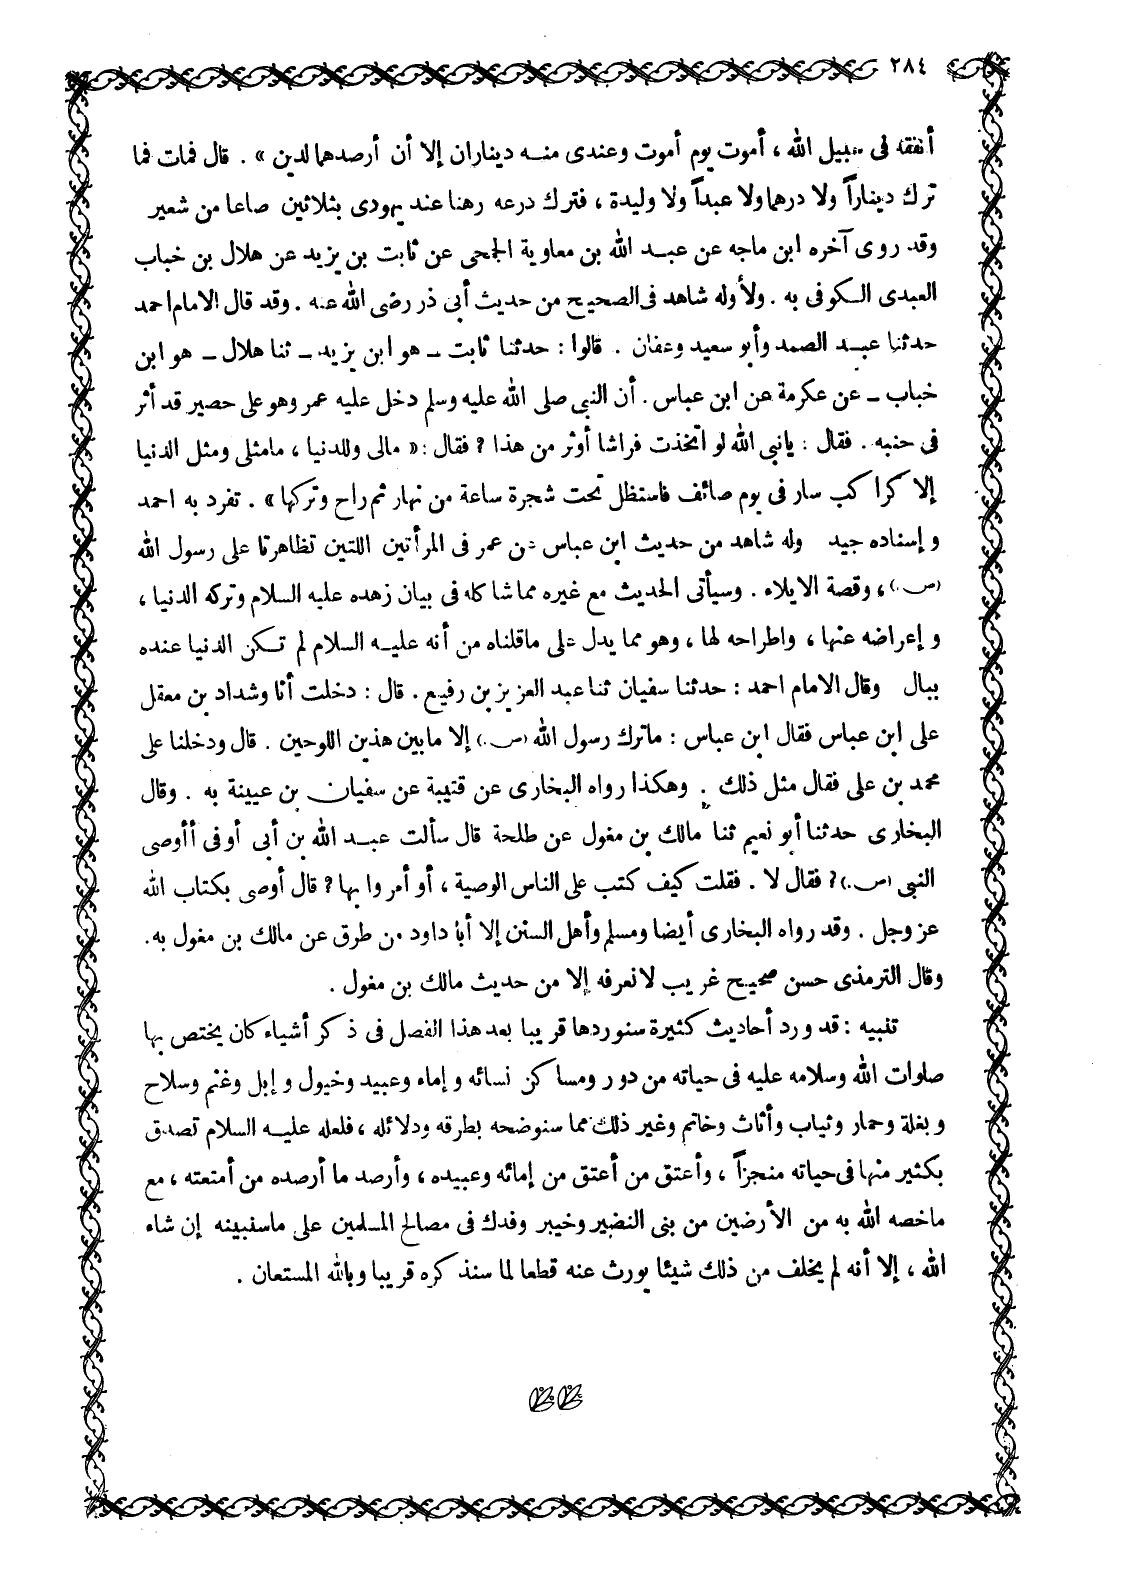 ٢٨٤
أنفقه فى سبيل الله ، أموت يوم أموت وعندى منه ديناران إلا أن أرصدهما لدين » . قال فمات فما
ترك ديناراً ولا درهما ولا عبداً ولا وليدة ، فترك درعه رهنا عند يهودى بثلاثين صاعا من شعير
وقد روى آخره ابن ماجه عن عبد الله بن معاوية الجمحى عن ثابت بن يزيد عن هلال بن خباب
العبدى الكوفى به . ولأوله شاهد فى الصحيح من حديث أبى ذر رضى الله عنه . وقد قال الامام احمد
حدثنا عبد الصمد وأبو سعيد وعفان . قالوا : حدثنا ثابت ـ هو ابن يزيد ـ ثنا هلال ـ هو ابن
خباب ـ عن عكرمة عن ابن عباس . أن النبى صلى الله عليه وسلم دخل عليه عمر وهو على حصير قد أثر
فى جنبه . فقال : يانبى الله لو اتخذت فراشا أوثر من هذا ؟ فقال : « مالى وللدنيا ، مامثلى ومثل الدنيا
إلا كراكب سار فى يوم صائف فاستظل تحت شجرة ساعة من نهار ثم راح وتركها » . تفرد به احمد
و إسناده جيد وله شاهد من حديث ابن عباس عن عمر فى المرأتين اللتين تظاهرتا على رسول الله
(ص.) ، وقصة الايلاء . وسيأتى الحديث مع غيره مما شاكله فى بيان زهده عليه السلام وتركه الدنيا ،
و إعراضه عنها ، واطراحه لها ، وهو مما يدل على ماقلناه من أنه عليه السلام لم تكن الدنيا عنده
ببال وقال الامام احمد : حدثنا سفيان ثنا عبد العزيز بن رفيع . قال : دخلت أنا وشداد بن معقل
على ابن عباس فقال ابن عباس : ماترك رسول الله (ص.) إلا مابين هذين اللوحين . قال ودخلنا على
محمد بن على فقال مثل ذلك . وهكذا رواه البخارى عن قتيبة عن سفيان بن عيينة به . وقال
البخارى حدثنا أبو نعيم ثنا مالك بن مغول عن طلحة قال سألت عبد الله بن أبى أوفى أأوصى
النبى (ص.) ؟ فقال لا . فقلت كيف كتب على الناس الوصية ، أو أمروا بها ؟ قال أوصى بكتاب الله
عز وجل . وقد رواه البخارى أيضا ومسلم وأهل السنن إلا أبا داود من طرق عن مالك بن مغول به.
وقال الترمذى حسن صحيح غريب لانعرفه إلا من حديث مالك بن مغول .
تنبيه : قد ورد أحاديث كثيرة سنوردها قريبا بعد هذا الفصل فى ذكر أشياء كان يختص بها
صلوات الله وسلامه عليه فى حياته من دور ومساكن نسائه و إماء وعبيد وخيول و إبل وغنم وسلاح
و بغلة وحمار وثياب وأثاث وخاتم وغير ذلك مما سنوضحه بطرقه ودلائله ، فلعله عليه السلام تصدق
بكثير منها فى حياته منجزاً ، وأعتق من أعتق من إمائه وعبيده ، وأرصد ما أرصده من أمتعته ، مع
ماخصه الله به من الأرضين من بنى النضير وخيبر وفدك فى مصالح المسلمين على ماسنبينه إن شاء
الله ، إلا أنه لم يخلف من ذلك شيئا يورث عنه قطعا لما سنذكره قريبا وبالله المستعان .